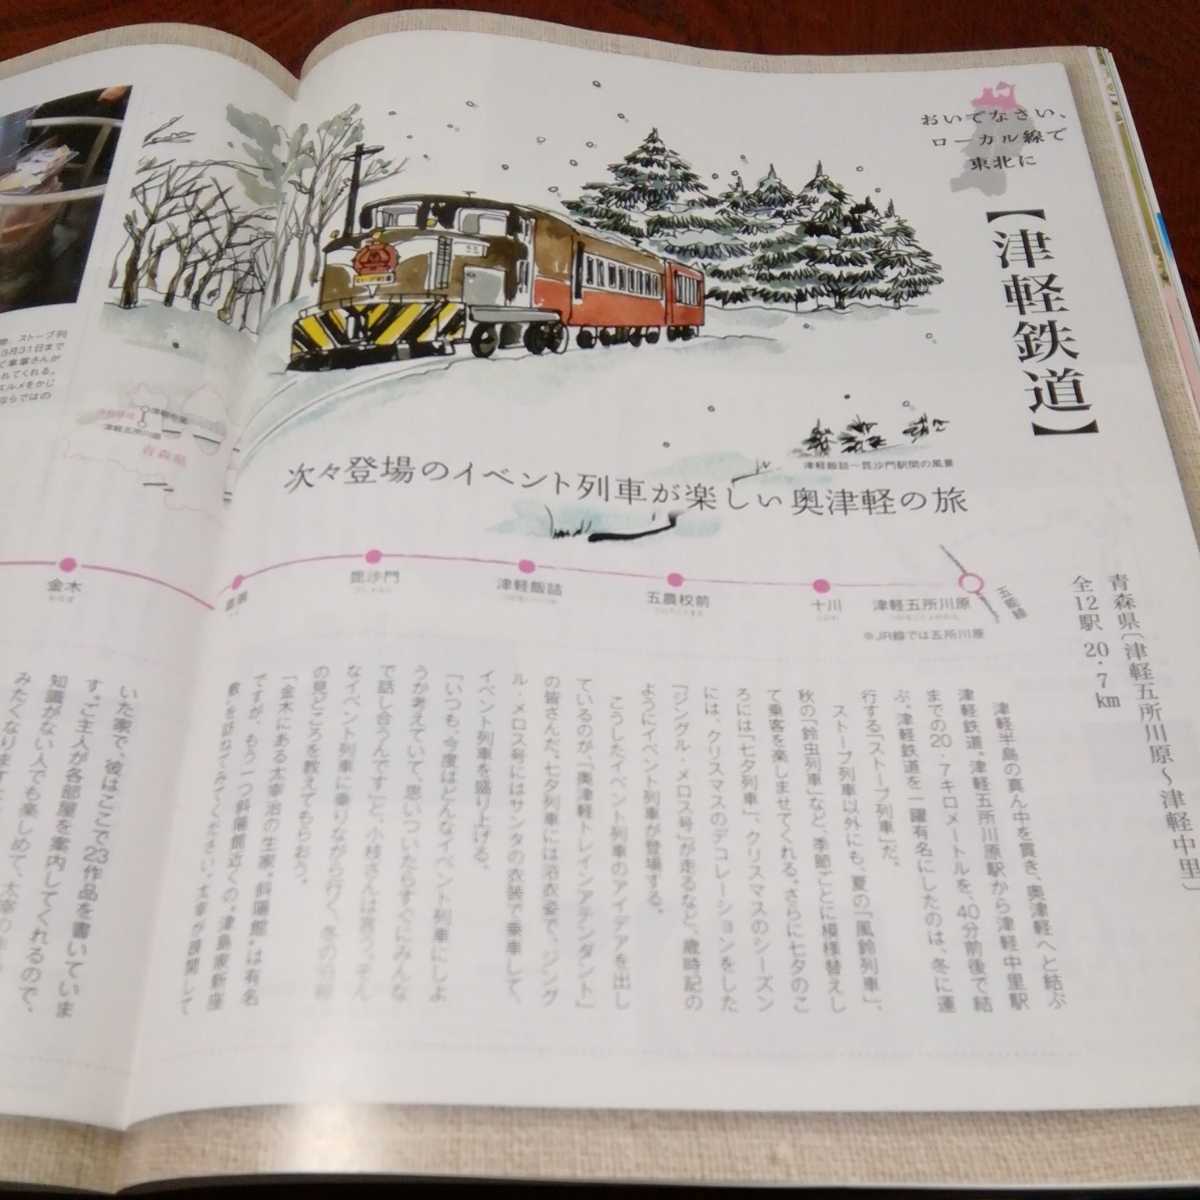 おいでなさい、
ローカル線で
東北に
【津軽鉄道】
青森県〔津軽五所川原〜津軽中里〕
全12駅 20・7km
津軽飯詰〜毘沙門駅間の風景
次々登場のイベント列車が楽しい奥津軽の旅
五能線
津軽五所川原
※JR線では五所川原
十川
五農校前
津軽飯詰
毘沙門
嘉瀬
金木
青森県
津軽五所川原
ストーブ列
3月31日まで
で車掌さんが
れてくれる。
ルメをかじ
ならではの
津軽半島の真ん中を貫き、奥津軽へと結ぶ
津軽鉄道。津軽五所川原駅から津軽中里駅
までの20・7キロメートルを、40分前後で結
ぶ。津軽鉄道を一躍有名にしたのは、冬に運
行する「ストーブ列車」だ。
ストーブ列車以外にも、夏の「風鈴列車」、
秋の「鈴虫列車」など、季節ごとに模様替えし
て乗客を楽しませてくれる。さらに七夕のこ
ろには「七夕列車」、クリスマスのシーズン
には、クリスマスのデコレーションをした
「ジングル・メロス号」が走るなど、歳時記の
ようにイベント列車が登場する。
こうしたイベント列車のアイデアを出し
ているのが、「奥津軽トレインアテンダント」
の皆さんだ。七夕列車には浴衣姿で、ジング
ル・メロス号にはサンタの衣装で乗車して、
イベント列車を盛り上げる。
「いつも、今度はどんなイベント列車にしよ
うか考えていて、思いついたらすぐにみんな
で話し合うんです」と、小枝さんは言う。そん
なイベント列車に乗りながら行く、冬の沿線
の見どころを教えてもらおう。
「金木にある太宰治の生家。斜陽館〟は有名
ですが、もう一つ斜陽館近くの〝津島家新座
敷〟を訪ねてみてください。太宰が疎開して
いた家で、彼はここで23作品を書いていま
す。ご主人が各部屋を案内してくれるので、
知識がない人でも楽しめて、太宰の
みたくなります